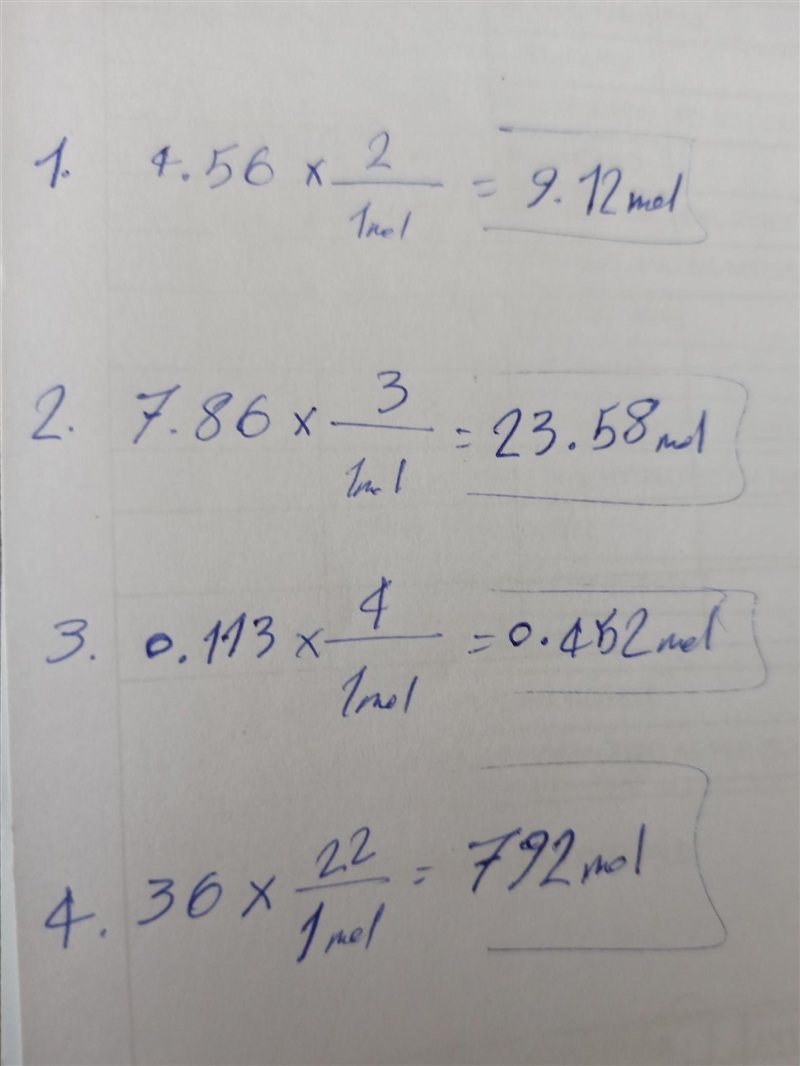 1. 4.56 x 2/1mol = 9.12mol
2. 7.86 x 3/1mol = 23.58mol
3. 0.113 x 4/1mol = 0.452mol
4. 36 x 22/1mol = 792mol